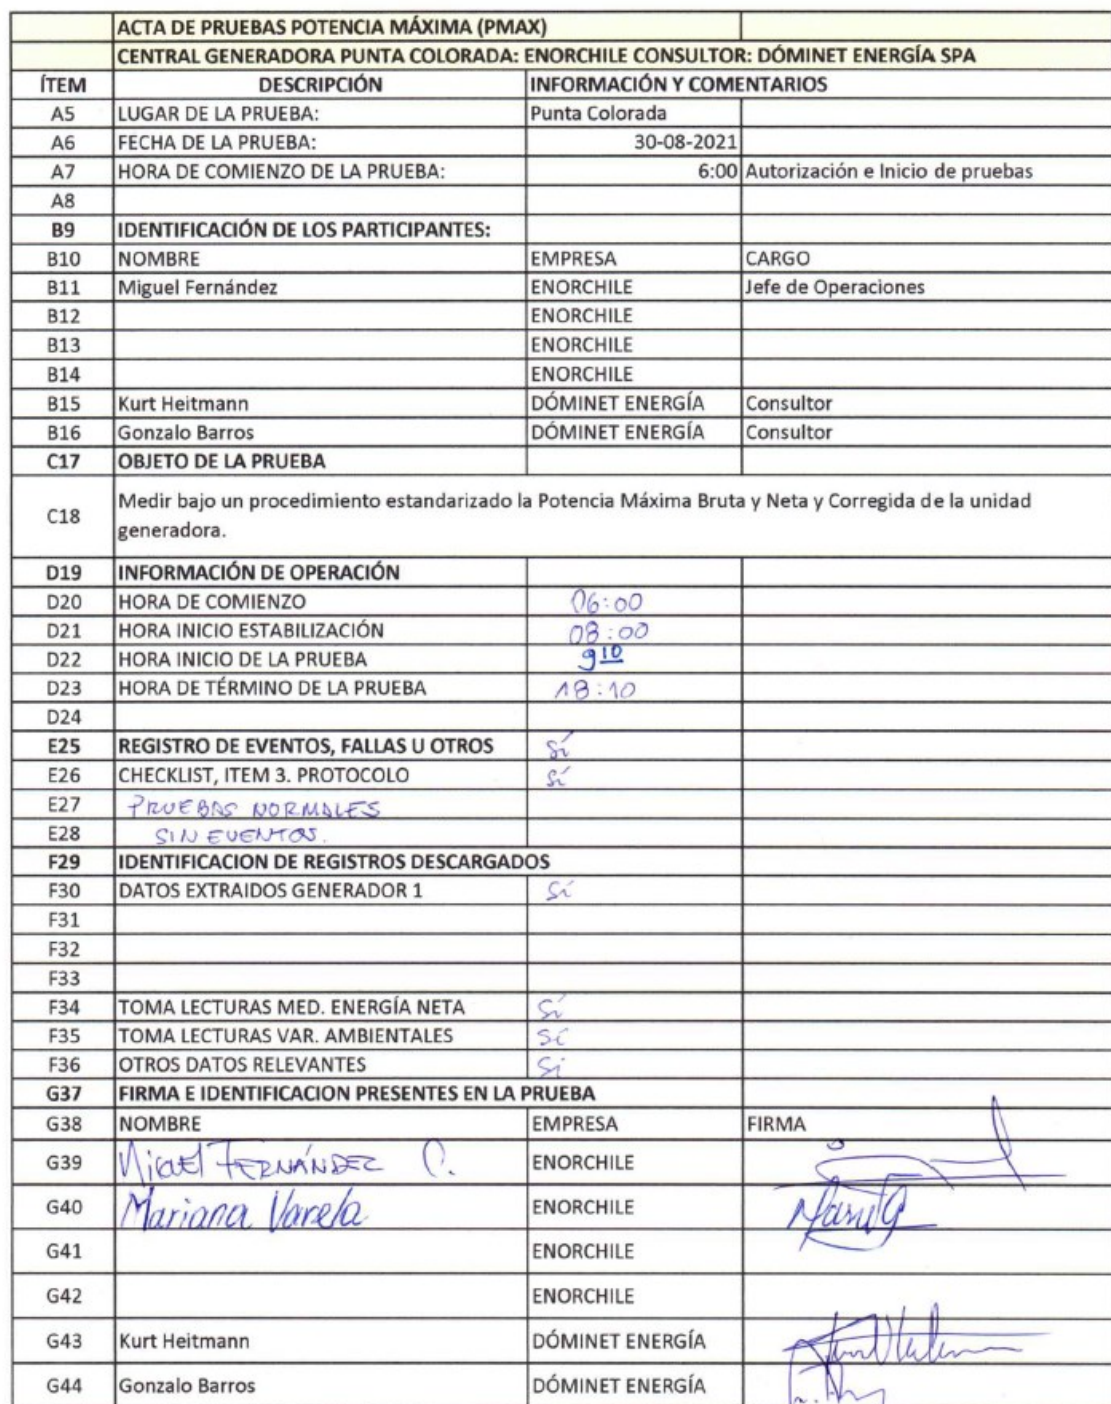 ACTA DE PRUEBAS POTENCIA MÁXIMA (PMAX)
CENTRAL GENERADORA PUNTA COLORADA: ENORCHILE CONSULTOR: DÓMINET ENERGÍA SPA
ÍTEM DESCRIPCIÓN INFORMACIÓN Y COMENTARIOS
A5 LUGAR DE LA PRUEBA: Punta Colorada
A6 FECHA DE LA PRUEBA: 30-08-2021
A7 HORA DE COMIENZO DE LA PRUEBA: 6:00 Autorización e Inicio de pruebas
A8
B9 IDENTIFICACIÓN DE LOS PARTICIPANTES:
B10 NOMBRE EMPRESA CARGO
B11 Miguel Fernández ENORCHILE Jefe de Operaciones
B12 ENORCHILE
B13 ENORCHILE
B14 ENORCHILE
B15 Kurt Heitmann DÓMINET ENERGÍA Consultor
B16 Gonzalo Barros DÓMINET ENERGÍA Consultor
C17 OBJETO DE LA PRUEBA
C18 Medir bajo un procedimiento estandarizado la Potencia Máxima Bruta y Neta y Corregida de la unidad
generadora.
D19 INFORMACIÓN DE OPERACIÓN
D20 HORA DE COMIENZO 06:00
D21 HORA INICIO ESTABILIZACIÓN 08:00
D22 HORA INICIO DE LA PRUEBA 9 10
D23 HORA DE TÉRMINO DE LA PRUEBA 18:10
D24
E25 REGISTRO DE EVENTOS, FALLAS U OTROS Sí
E26 CHECKLIST, ITEM 3. PROTOCOLO Sí
E27 PRUEBAS NORMALES
E28 SIN EVENTOS.
F29 IDENTIFICACION DE REGISTROS DESCARGADOS
F30 DATOS EXTRAIDOS GENERADOR 1 Sí
F31
F32
F33
F34 TOMA LECTURAS MED. ENERGÍA NETA Sí
F35 TOMA LECTURAS VAR. AMBIENTALES Sí
F36 OTROS DATOS RELEVANTES Si
G37 FIRMA E IDENTIFICACION PRESENTES EN LA PRUEBA
G38 NOMBRE EMPRESA FIRMA
G39 Miguel FERNÁNDEZ O. ENORCHILE
G40 Mariana Varela ENORCHILE
G41 ENORCHILE
G42 ENORCHILE
G43 Kurt Heitmann DÓMINET ENERGÍA
G44 Gonzalo Barros DÓMINET ENERGÍA